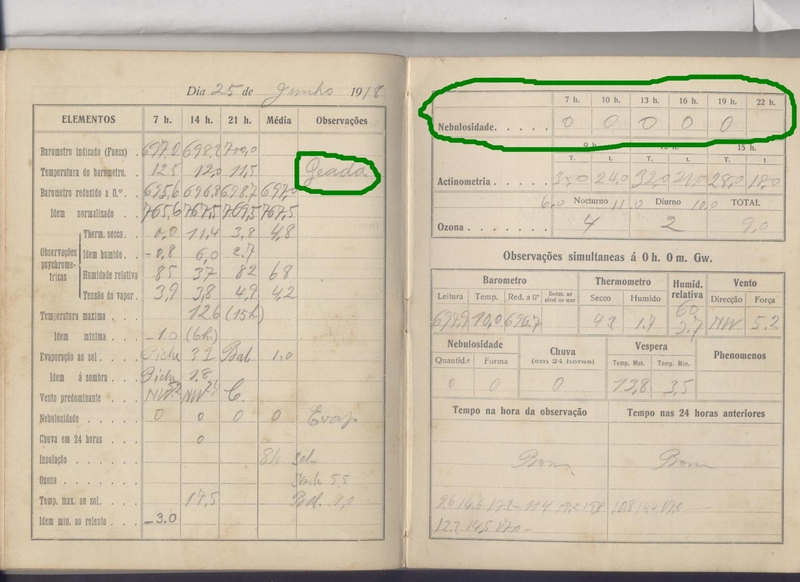 Dia 25 de Junho 1918
ELEMENTOS 7 h. 14 h. 21 h. Média Observações
Barometro indicado (Fuess) 697.0 698,2 700,0
Temperatura do barometro. 12.5 12,0 11,5 Geada
Barometro reduzido a 0.º 695,6 696,8 698,7 697,0
Idem normalizado. 765,6 767,5 769,5 767,5
Observações psychrometricas
Therm. secco. 0,0 11,4 3,8 4,8
Idem humido. -0,8 6,0 2.7
Humidade relativa 85 37 82 68
Tensão do vapor. 3,9 3,8 4,9 4,2
Temperatura maxima 12.6 (15h)
Idem minima -1.0 (6h)
Evaporação ao sol. Piche 3.2 Bal 1,0
Idem á sombra Piche 1.8
Vento predominante NW NW C.
Nebulosidade 0 0 0 0 Evap.
Chuva em 24 horas 0
Insolação
Ozona
Temp. max. ao sol. 17,5
Idem min. ao relento -3.0
7 h. 10 h. 13 h. 16 h. 19 h. 22 h.
Nebulosidade. 0 0 0 0 0
9 h. 12 h. 15 h.
T. t. T. t. T. t.
Actinometria 24,0 32,0 21,0 28,0 18,0
Nocturno Diurno TOTAL
Ozona 4 2 9,0
Observações simultaneas á 0 h. 0 m. Gw.
Barometro Thermometro Humid. relativa Vento
Leitura Temp. Red. a 0º Reduz. ao nivel do mar Secco Humido Direcção Força
697,9 10,0 696.7 4.2 1.7 60 NW 5.2
3.7
Nebulosidade Chuva (em 24 horas) Vespera Phenomenos
Quantid.e Forma Temp. Max. Temp. Min.
0 0 0 13,8 3,5
Tempo na hora da observação Tempo nas 24 horas anteriores
Bom Bom